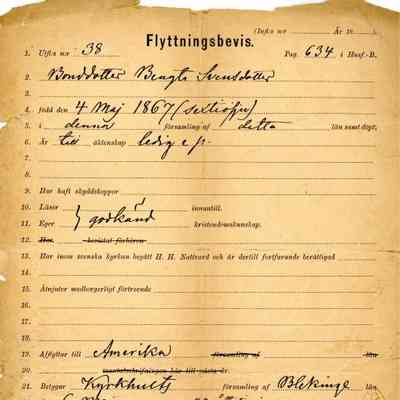 (Infl:s nr År 18
Flyttningsbevis.
1. Utfl:s nr 38 Pag. 634 i Husf.-B.
2. Bonddotter Bengta Svensdotter
3.
4. född den 4 Maj 1867 (sextiosju)
5. i denna församling af detta län samt döpt,
6. Är till äktenskap ledig
7.
8.
9. Har haft skyddskoppor
10. Läser innantill.
godkänd
11. Eger kristendomskunskap.
12. Har bevistat förhören
13. Har inom svenska kyrkan begått H. H. Nattvard och är dertill fortfarande berättigad
14.
15. Åtnjuter medborgerligt förtroende
16.
17.
18.
19. Afflyttar till Amerika församling af län
20. mantalsskrifningen här till nästa år.
21. Betygar Kyrkhults församling af Blekinge län
Maj